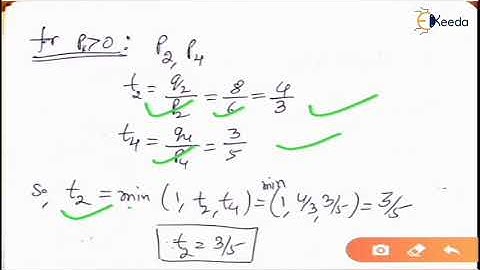 Ekeeda
for Pₖ>0: P₂, P₄
t₂ = q₂/P₂ = 8/6 = 4/3
t₄ = q₄/P₄ = 3/5
So, t₂ = min (1, t₂, t₄) = min (1, 4/3, 3/5) = 3/5
t₂ = 3/5